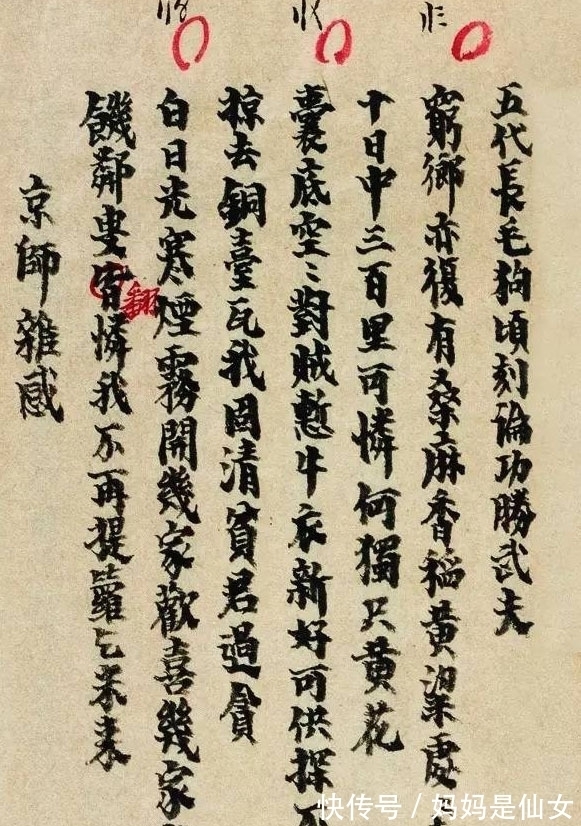 五代長毛狗頃刻論功勝武夫
窮鄉亦復有桑麻香稻黃粱處
十日中三百里可憐何獨只黃花
囊底空〻對賊慙牛衣新好可供探
掠去銅臺瓦我固清貧君過貪
白日光寒煙霧開幾家歡喜幾家
饑鄰叟皆憐我不再提籮乞米来
翻
京師雜感
快传号 / 妈妈是仙女